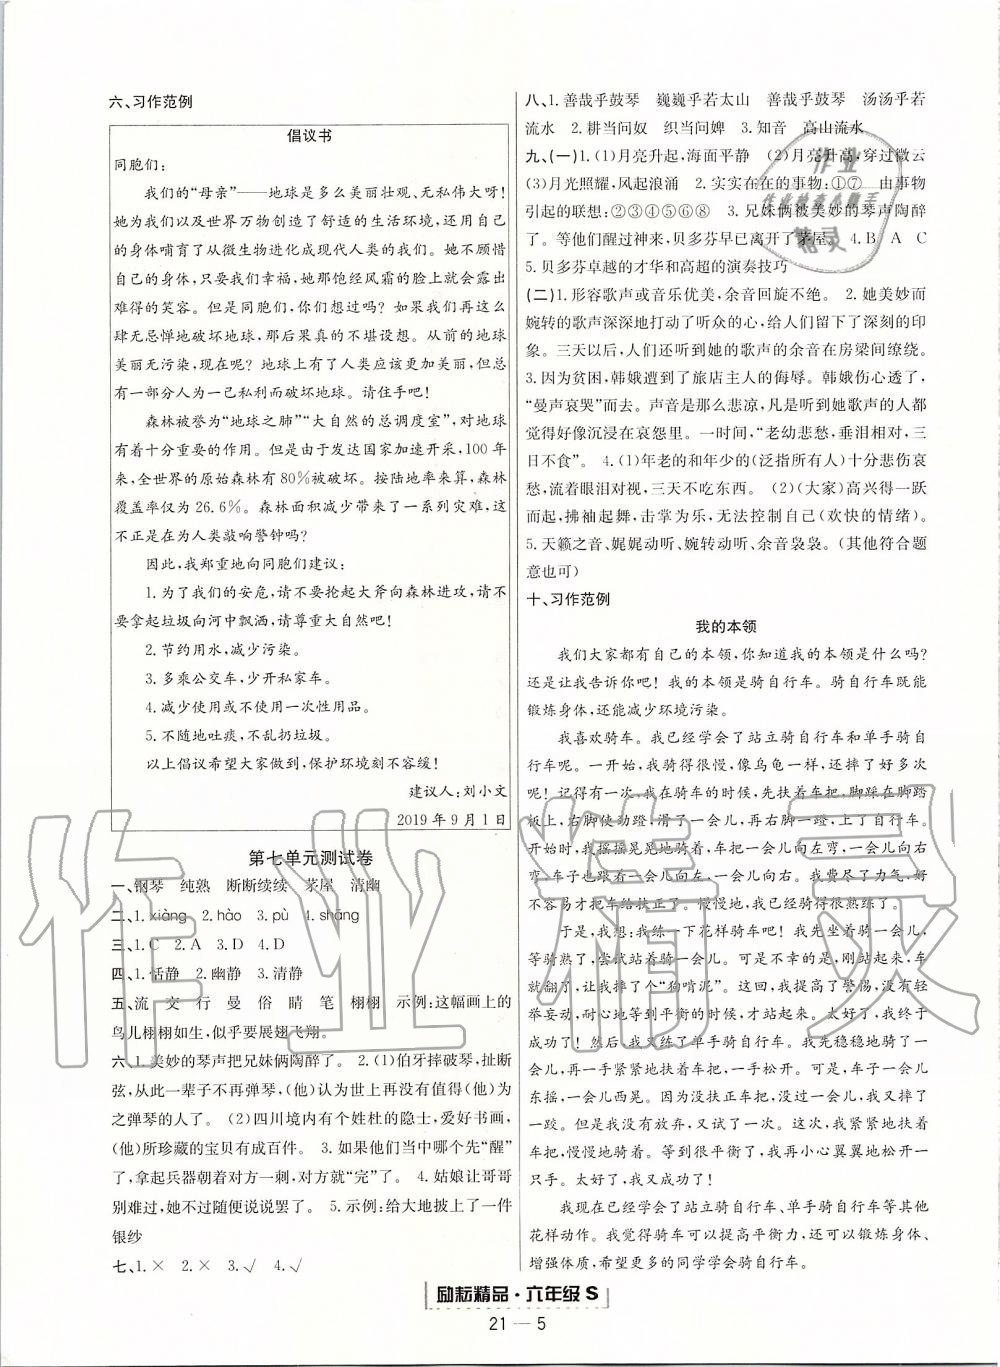 六、习作范例
倡议书
同胞们：
我们的“母亲”——地球是多么美丽壮观、无私伟大呀！
她为我们以及世界万物创造了舒适的生活环境，还用自己
的身体哺育了从微生物进化成现代人类的我们。她不顾惜
自己的身体，只要我们幸福，她那饱经风霜的脸上就会露出
难得的笑容。但是同胞们，你们想过吗？如果我们再这么
肆无忌惮地破坏地球，那后果真的不堪设想。从前的地球
美丽无污染，现在呢？地球上有了人类应该更加美丽，但是
有一部分人为一己私利而破坏地球。请住手吧！
森林被誉为“地球之肺”“大自然的总调度室”，对地球
有着十分重要的作用。但是由于发达国家加速开采，100年
来，全世界的原始森林有80%被破坏。按陆地率来算，森林
覆盖率仅为26.6%。森林面积减少带来了一系列灾难，这
不正是在为人类敲响警钟吗？
因此，我郑重地向同胞们建议：
1.为了我们的安危，请不要抡起大斧向森林进攻，请不
要拿起垃圾向河中飘洒，请尊重大自然吧！
2.节约用水，减少污染。
3.多乘公交车，少开私家车。
4.减少使用或不使用一次性用品。
5.不随地吐痰，不乱扔垃圾。
以上倡议希望大家做到，保护环境刻不容缓！
建议人：刘小文
2019年9月1日
第七单元测试卷
一、钢琴 纯熟 断断续续 茅屋 清幽
二、1.xiàng 2.hào 3.pù 4.shāng
三、1.C 2.A 3.D 4.D
四、1.恬静 2.幽静 3.清静
五、流 文 行 曼 俗 睛 笔 栩栩 示例：这幅画上的
鸟儿栩栩如生，似乎要展翅飞翔。
六、1.美妙的琴声把兄妹俩陶醉了。 2.(1)伯牙摔破琴，扯断
弦，从此一辈子不再弹琴，(他)认为世上再没有值得(他)为
之弹琴的人了。 (2)四川境内有个姓杜的隐士，爱好书画，
(他)所珍藏的宝贝有成百件。 3.如果他们当中哪个先“醒”
了，拿起兵器朝着对方一刺，对方就“完”了。 4.姑娘让哥哥
别难过，她不过随便说说罢了。 5.示例：给大地披上了一件
银纱
七、1.× 2.× 3.√ 4.√
八、1.善哉乎鼓琴 巍巍乎若太山 善哉乎鼓琴 汤汤乎若
流水 2.耕当问奴 织当问婢 3.知音 高山流水
九、(一)1.(1)月亮升起，海面平静 (2)月亮升高，穿过微云
(3)月光照耀，风起浪涌 2.实实在在的事物：①⑦ 由事物
引起的联想：②③④⑤⑥⑧ 3.兄妹俩被美妙的琴声陶醉
了。等他们醒过神来，贝多芬早已离开了茅屋。 4.B A C
5.贝多芬卓越的才华和高超的演奏技巧
(二)1.形容歌声或音乐优美，余音回旋不绝。 2.她美妙而
婉转的歌声深深地打动了听众的心，给人们留下了深刻的印
象。三天以后，人们还听到她的歌声的余音在房梁间缭绕。
3.因为贫困，韩娥遭到了旅店主人的侮辱。韩娥伤心透了，
“曼声哀哭”而去。声音是那么悲凉，凡是听到她歌声的人都
觉得好像沉浸在哀怨里。一时间，“老幼悲愁，垂泪相对，三
日不食”。 4.(1)年老的和年少的(泛指所有人)十分悲伤哀
愁，流着眼泪对视，三天不吃东西。 (2)(大家)高兴得一跃
而起，拂袖起舞，击掌为乐，无法控制自己(欢快的情绪)。
5.天籁之音、娓娓动听、婉转动听、余音袅袅。(其他符合题
意也可)
十、习作范例
我的本领
我们大家都有自己的本领，你知道我的本领是什么吗？
还是让我告诉你吧！我的本领是骑自行车。骑自行车既能
锻炼身体，还能减少环境污染。
我喜欢骑车。我已经学会了站立骑自行车和单手骑自
行车呢。一开始，我骑得很慢，像乌龟一样，还摔了好多次
呢！记得有一次，我在骑车的时候，先扶着车把，脚踩在脚踏
板上，右脚使劲蹬，滑了一会儿，再右脚一蹬，上了自行车。
开始时，我摇摇晃晃地骑着车，车子一会儿向左弯，一会儿向右
弯，车子也差点儿倒了，吓得我直冒冷汗。我费了九牛二虎之力，好
不容易才把车给扶正了。慢慢地，我骑得很熟练了。
于是，我想：我练一下花样骑车吧！我先坐着骑一会儿，
热热身，然后，尝试站着骑一会儿。可是，刚站起来，车子
就翻了，让我摔了个“狗啃泥”。我这次提高了警惕，没有轻
举妄动，耐心地等到平衡的时候，才站起来。太好了，我终于
成功了！然后，我又练了单手骑自行车。我先稳稳地骑一
会儿，再一手紧紧地扶住车把，一手松开。可是，车子一会儿
东摇，一会儿西晃。因为没控制好，我又摔了下来，还摔了一
跤。可我没有放弃，又练了一遍。这次，我紧紧地扶着一只
车把，慢慢地骑着。等到很平衡了，我再小心翼翼地松开一
只手。太好了，我又成功了！
我现在已经学会了站立骑自行车、单手骑自行车等其他
花样动作。我觉得骑车可以提高平衡力，还可以锻炼身体、
增强体质，希望更多的同学学会骑自行车。
励耘精品·六年级S
21—5
作业精灵